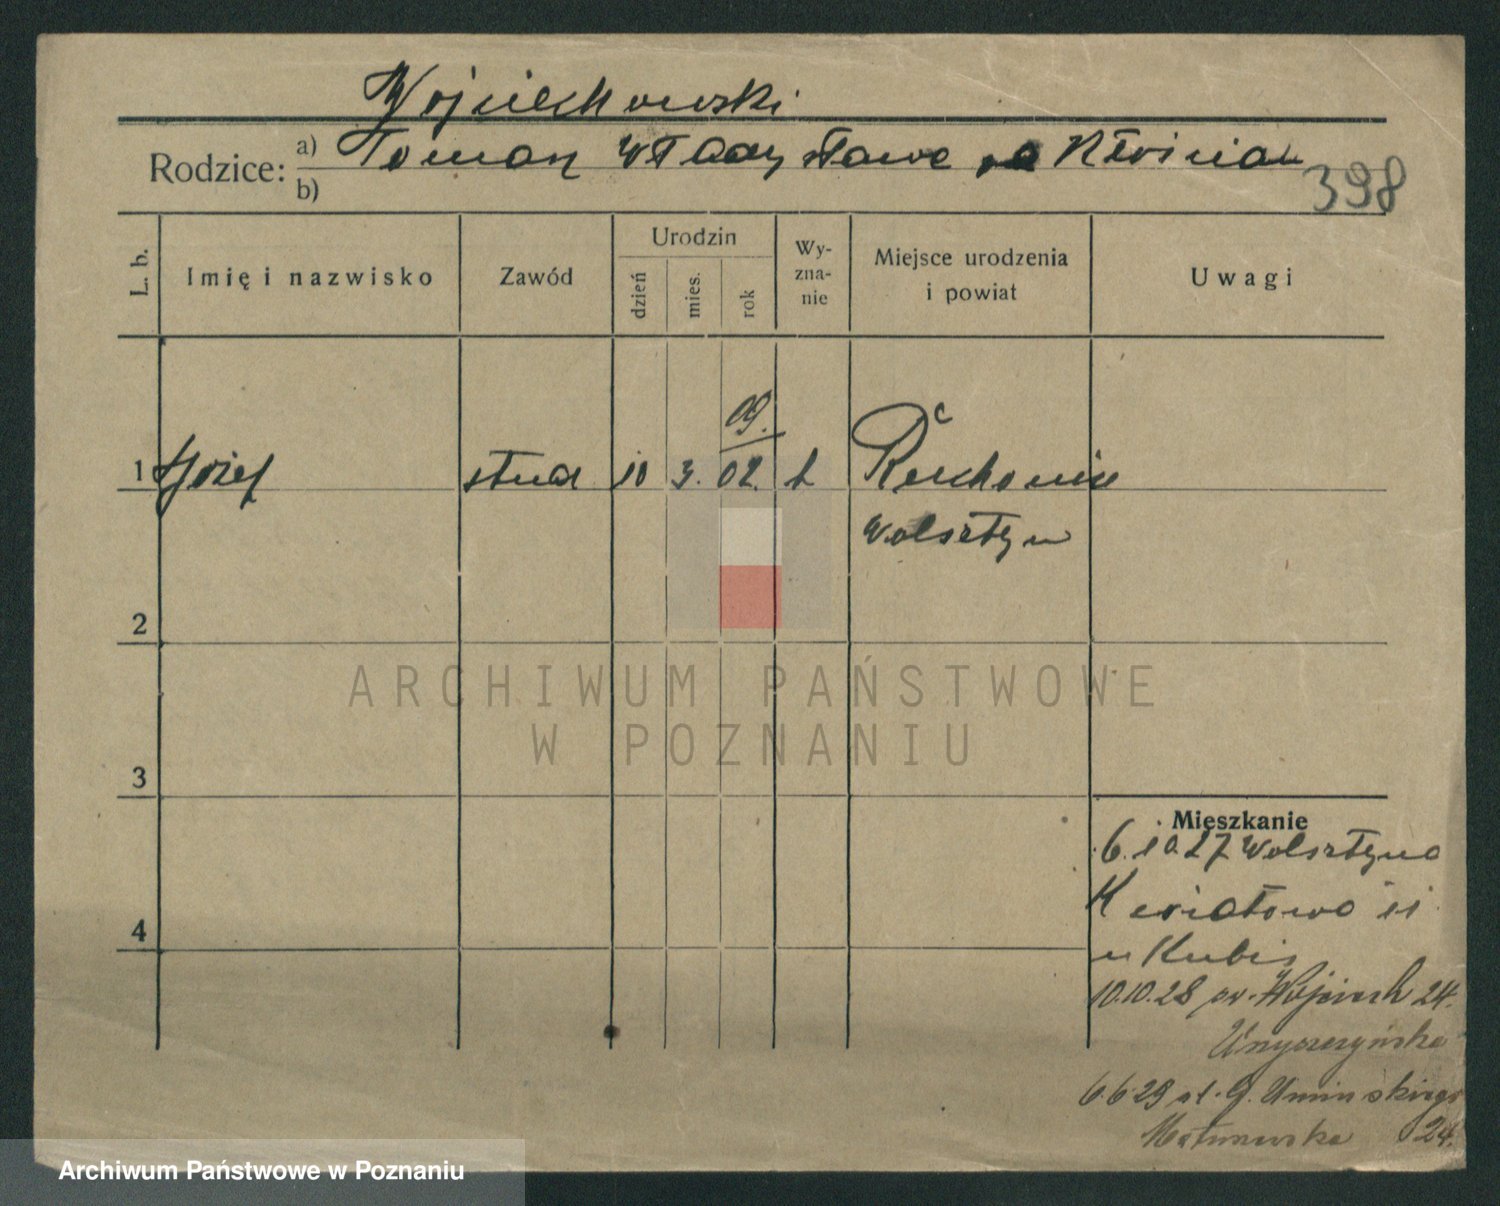 Wojciechowski
Rodzice: a) Tomasz Władysława
b)
398
L. b. Imię i nazwisko Zawód Urodzin dzień mies. rok Wyznanie Miejsce urodzenia i powiat Uwagi
09.
1 Józef stud 10 3. 02.
Wolsztyn
2
3
4
ARCHIWUM PAŃSTWOWE
W POZNANIU
Mieszkanie
6.10 27 Wolsztyna
Kwiatowa 11
u Kubis
10.10.28 św. Wojciech 24.
6.6 29 Umińskiego
24.
Archiwum Państwowe w Poznaniu